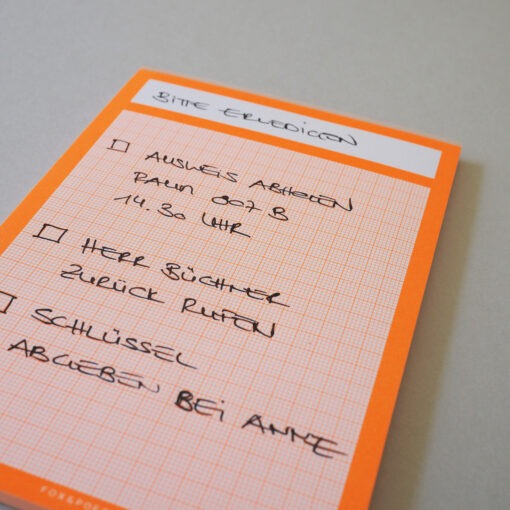 BITTE ERLEDIGEN
AUSWEIS ABHOLEN
RAUM 007 B
14.30 UHR
HERR BÜCHNER
ZURÜCK RUFEN
SCHLÜSSEL
ABGEBEN BEI ANNE